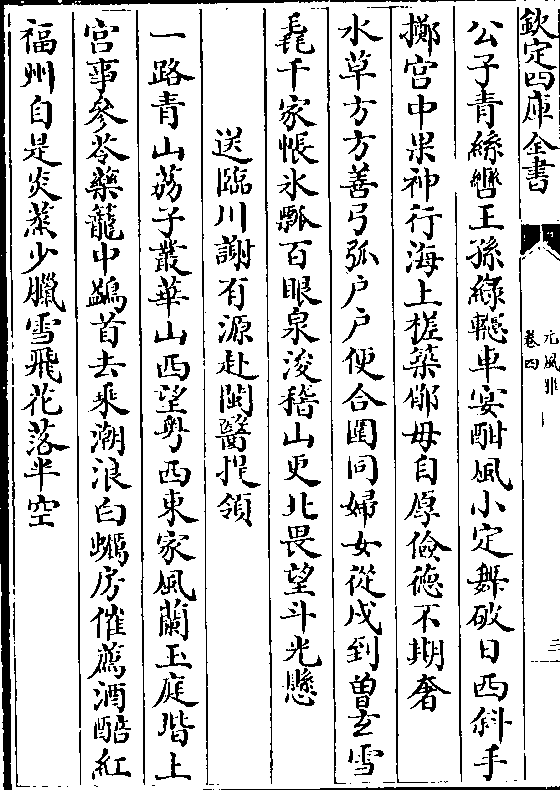 欽定四庫全書
元風雅
卷四
三
公子青絲轡王孫綠幰車宴酣風小定舞破日西斜手
擲宮中果神行海上槎築郿毋自厚儉德不期奢
水草方方善弓弧户户便合圍同婦女從戍到曾𤣥雪
毳千家帳氷瓢百眼泉浚稽山更北畏望斗光懸
送臨川謝有源赴閩醫提領
一路青山荔子叢華山西望粤西東家風蘭玉庭堦上
宫事參苓藥籠中鷁首去乘潮浪白蠣房催薦酒醅紅
福州自是炎蒸少臘雪飛花落半空